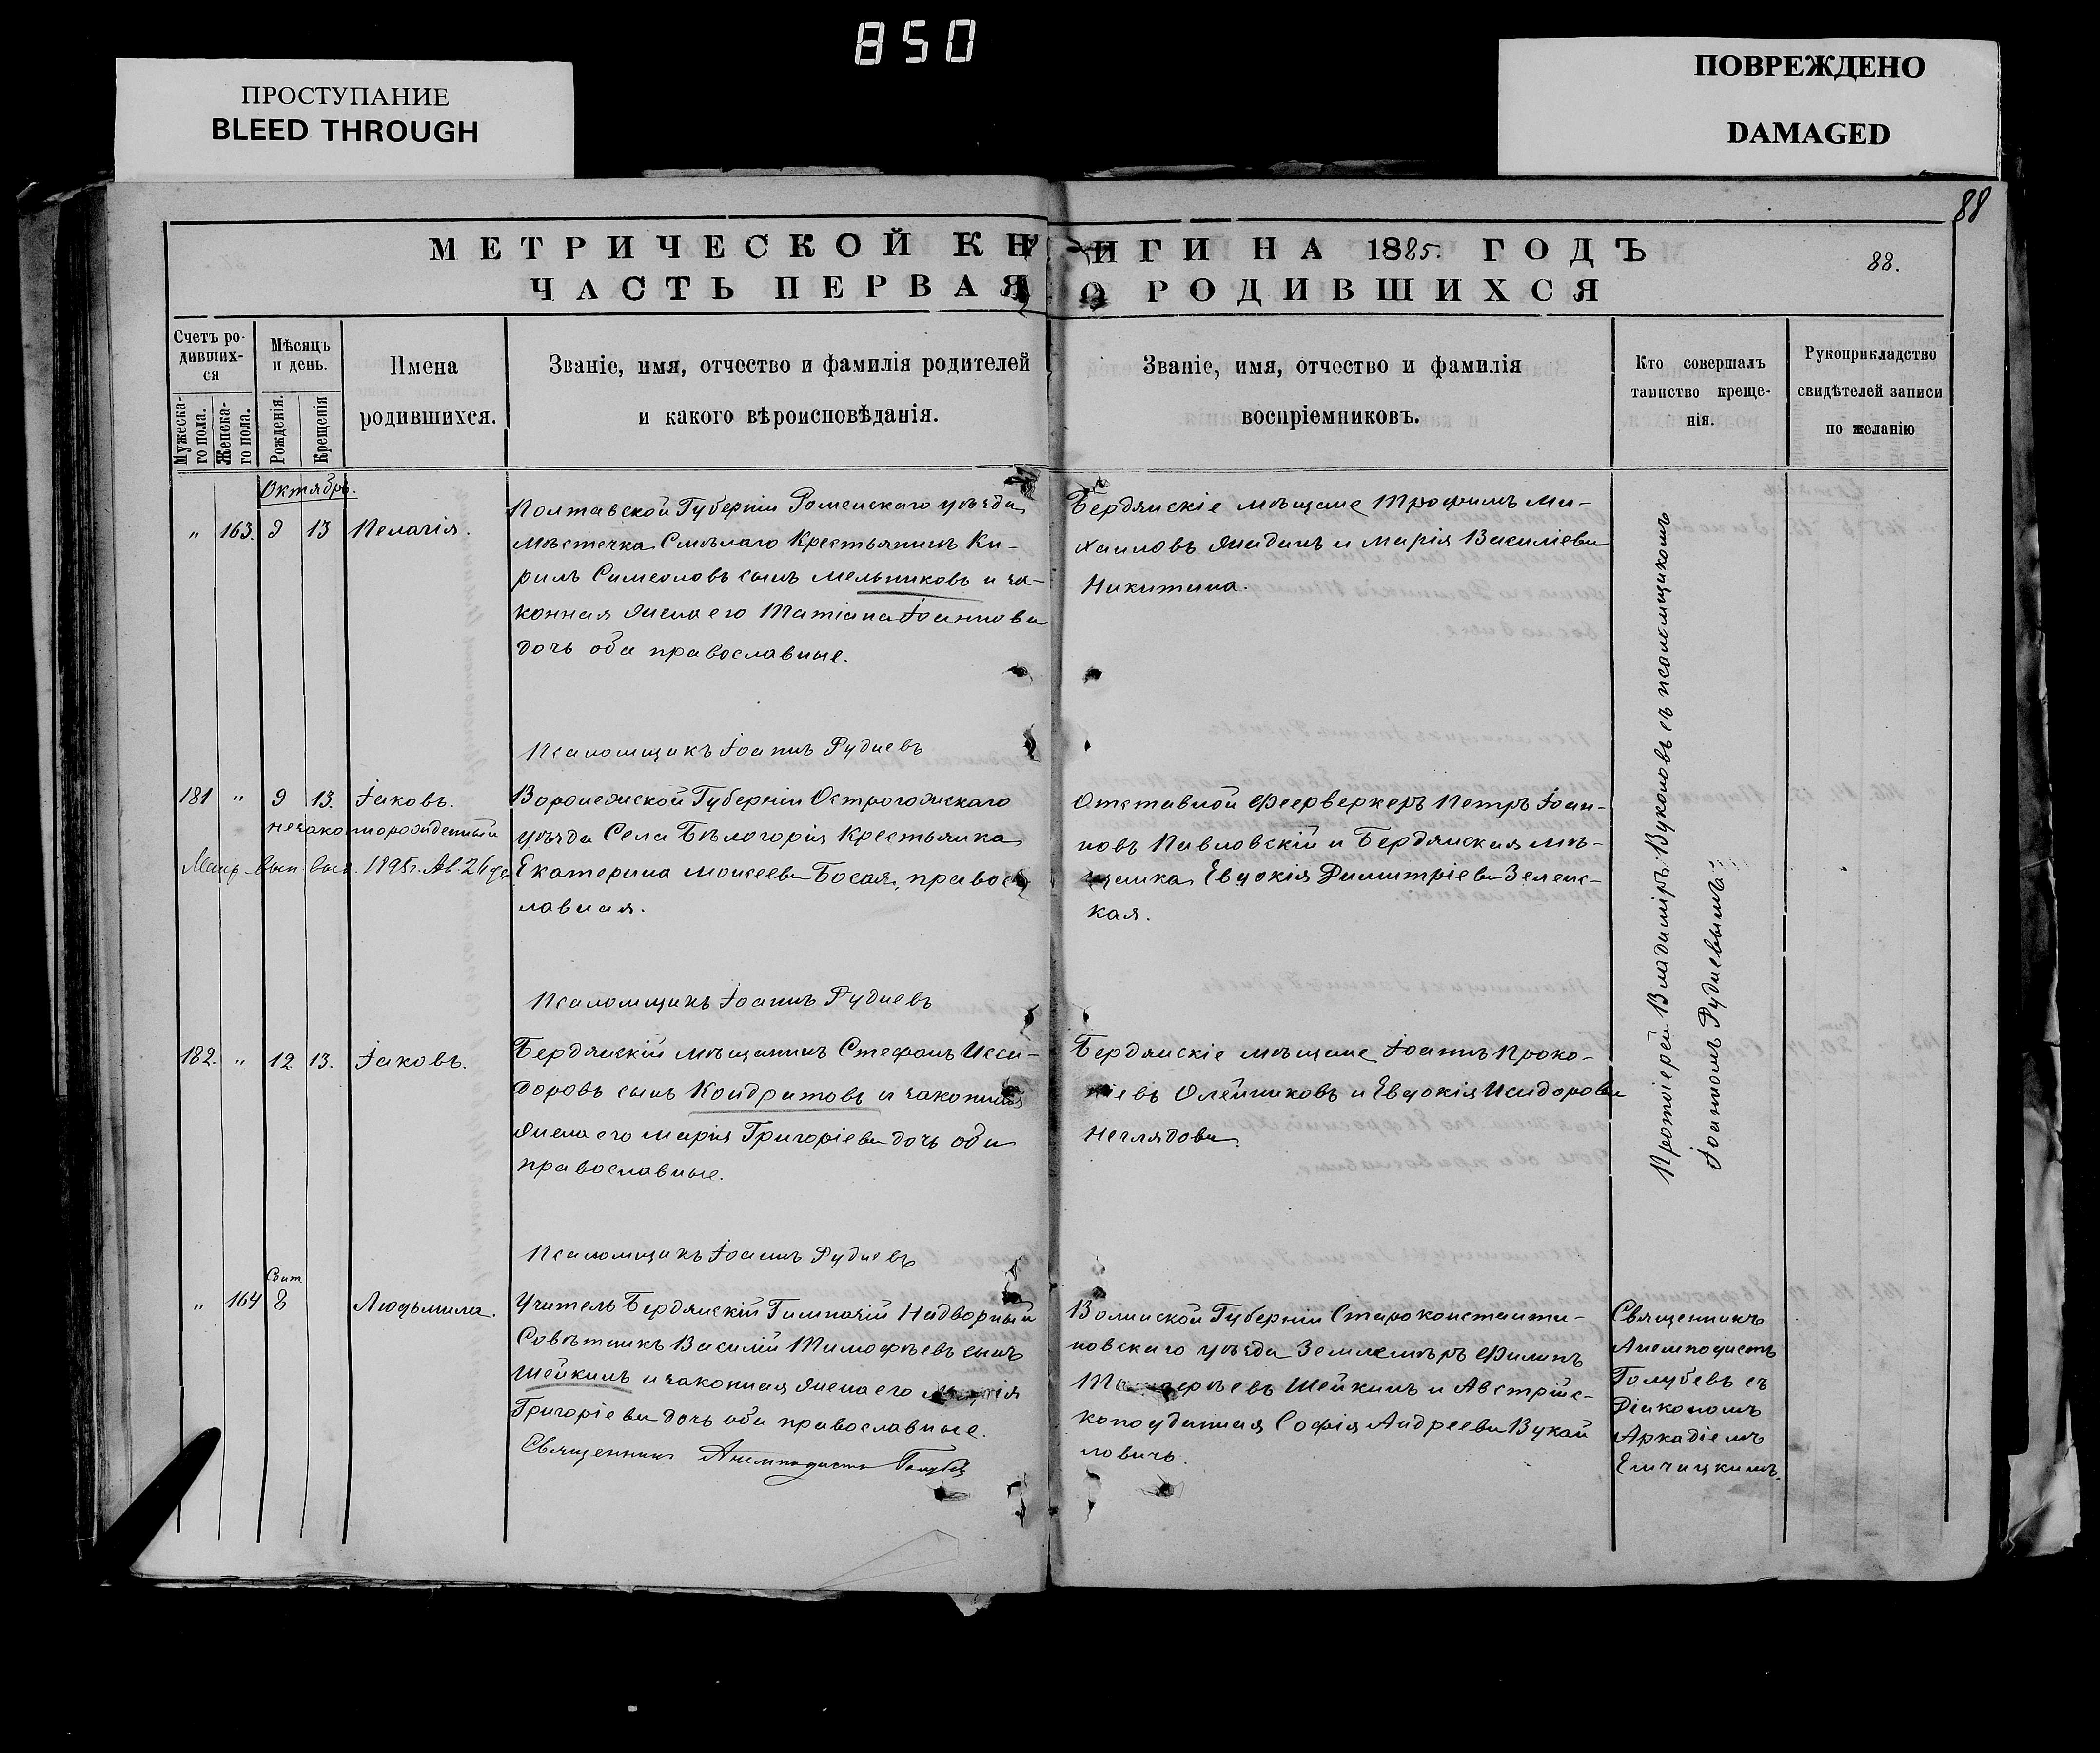 850
ПРОСТУПАНИЕ
BLEED THROUGH
ПОВРЕЖДЕНО
DAMAGED
88
МЕТРИЧЕСКОЙ КНИГИ НА 1885. ГОДЪ
88.
ЧАСТЬ ПЕРВАЯ О РОДИВШИХСЯ
Счетъ ро-
дивших-
ся
Мужеска-
го пола.
Женска-
го пола.
Мѣсяцъ
и день.
Рожденія.
Крещенія
Имена
родившихся.
Званіе, имя, отчество и фамилія родителей
и какого вѣроисповѣданія.
Званіе, имя, отчество и фамилія
воспріемниковъ.
Кто совершалъ
таинство креще-
нія.
Рукоприкладство
свидѣтелей записи
по желанію
Октябрь.
" 163. 9 13 Пелагія.
Полтавской Губерніи Роменскаго уѣзда
мѣстечка Смѣлаго Крестьянинъ Ки-
рилъ Симеоновъ сынъ Мельниковъ и за-
конная жена его Татіана Іоаннова
дочь оба православные.
Бердянскіе мѣщане Трофимъ Ми-
хаиловъ Жаданъ и Марія Василіева
Никитина.
Псаломщикъ Іоаннъ Рудневъ
181 " 9 13. Іаковъ.
незаконнорожденный
выд. 1895г.
Воронежской Губерніи Острогожскаго
уѣзда Села Бѣлогорія Крестьянка
Екатерина Моисеева Босая, правос-
лавная.
Отставной Феерверкеръ Петръ Іоан-
новъ Павловскій и Бердянская мѣ-
щанка Евдокія Димитріева Зеленс-
кая.
Псаломщикъ Іоаннъ Рудневъ
182. " 12. 13. Іаковъ.
Бердянскій мѣщанинъ Стефанъ Иси-
доровъ сынъ Кондратовъ и законная
жена его Марія Григоріева дочь оба
православные.
Бердянскіе мѣщане Іоаннъ Проко-
піевъ Олейниковъ и Евдокія Исидорова
Неглядова.
Протоіерей Владиміръ Вуколовъ съ псаломщикомъ
Іоанномъ Рудневымъ.
Псаломщикъ Іоаннъ Рудневъ
Сент.
" 164 8 Людьмила.
Учитель Бердянскій Гимназій Надворный
Совѣтникъ Василій Тимофѣевъ сынъ
Шейкинъ и законная жена его Марія
Григоріева дочь оба православные.
Священникъ Анемподистъ Голубевъ
Волынской Губерніи Староконстанти-
новскаго уѣзда Землемѣръ Филипъ
Шейкинъ и Австрійс-
коподданная Софія Андреева Вукай
ловичъ.
Священникъ
Анемподистъ
Голубевъ съ
Діакономъ
Аркадіемъ